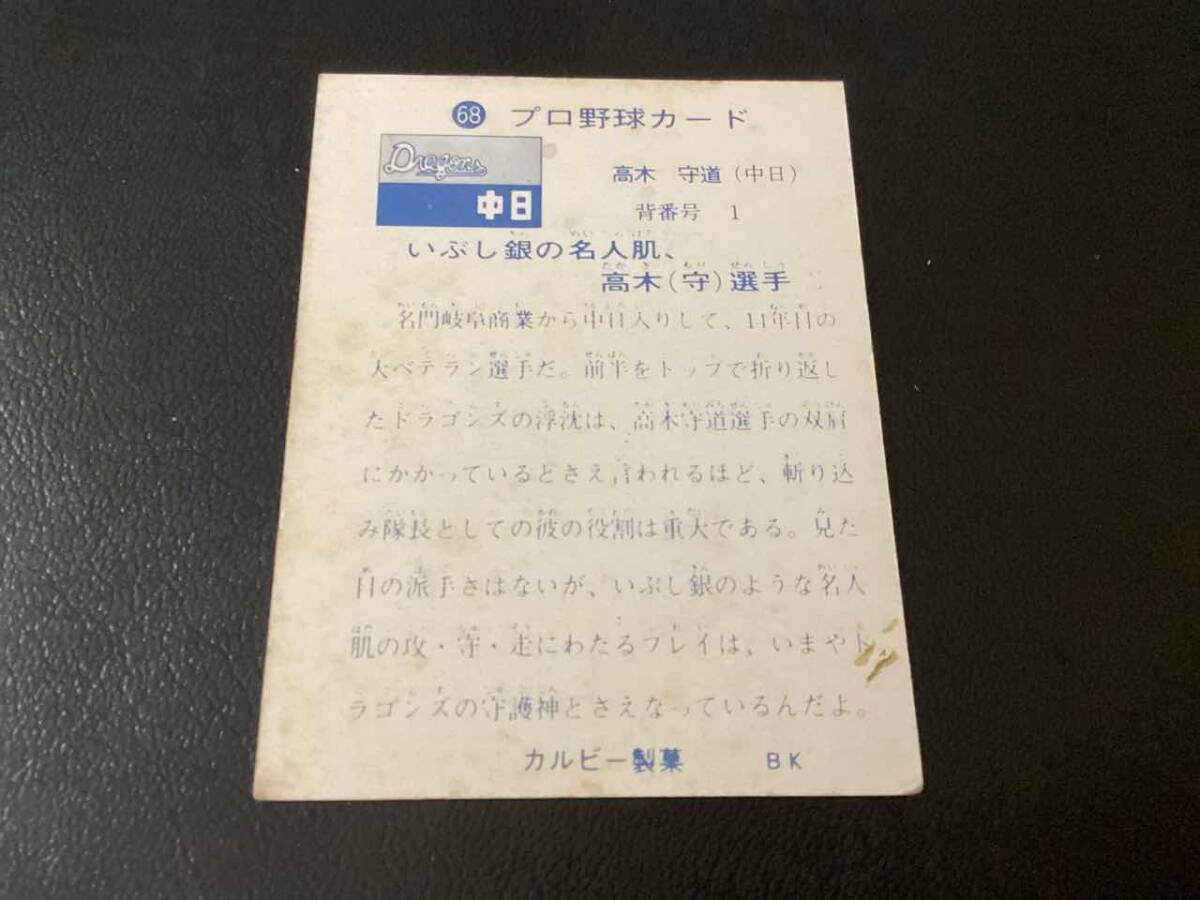 68 プロ野球カード
Dragons
中日
高木 守道（中日）
背番号 1
いぶし銀の名人肌、
高木（守）選手
名門岐阜商業から中日入りして、14年目の
大ベテラン選手だ。前半をトップで折り返し
たドラゴンズの浮沈は、高木守道選手の双肩
にかかっているとさえ言われるほど、斬り込
み隊長としての彼の役割は重大である。見た
目の派手さはないが、いぶし銀のような名人
肌の攻・守・走にわたるプレイは、いまやド
ラゴンズの守護神とさえなっているんだよ。
カルビー製菓 BK